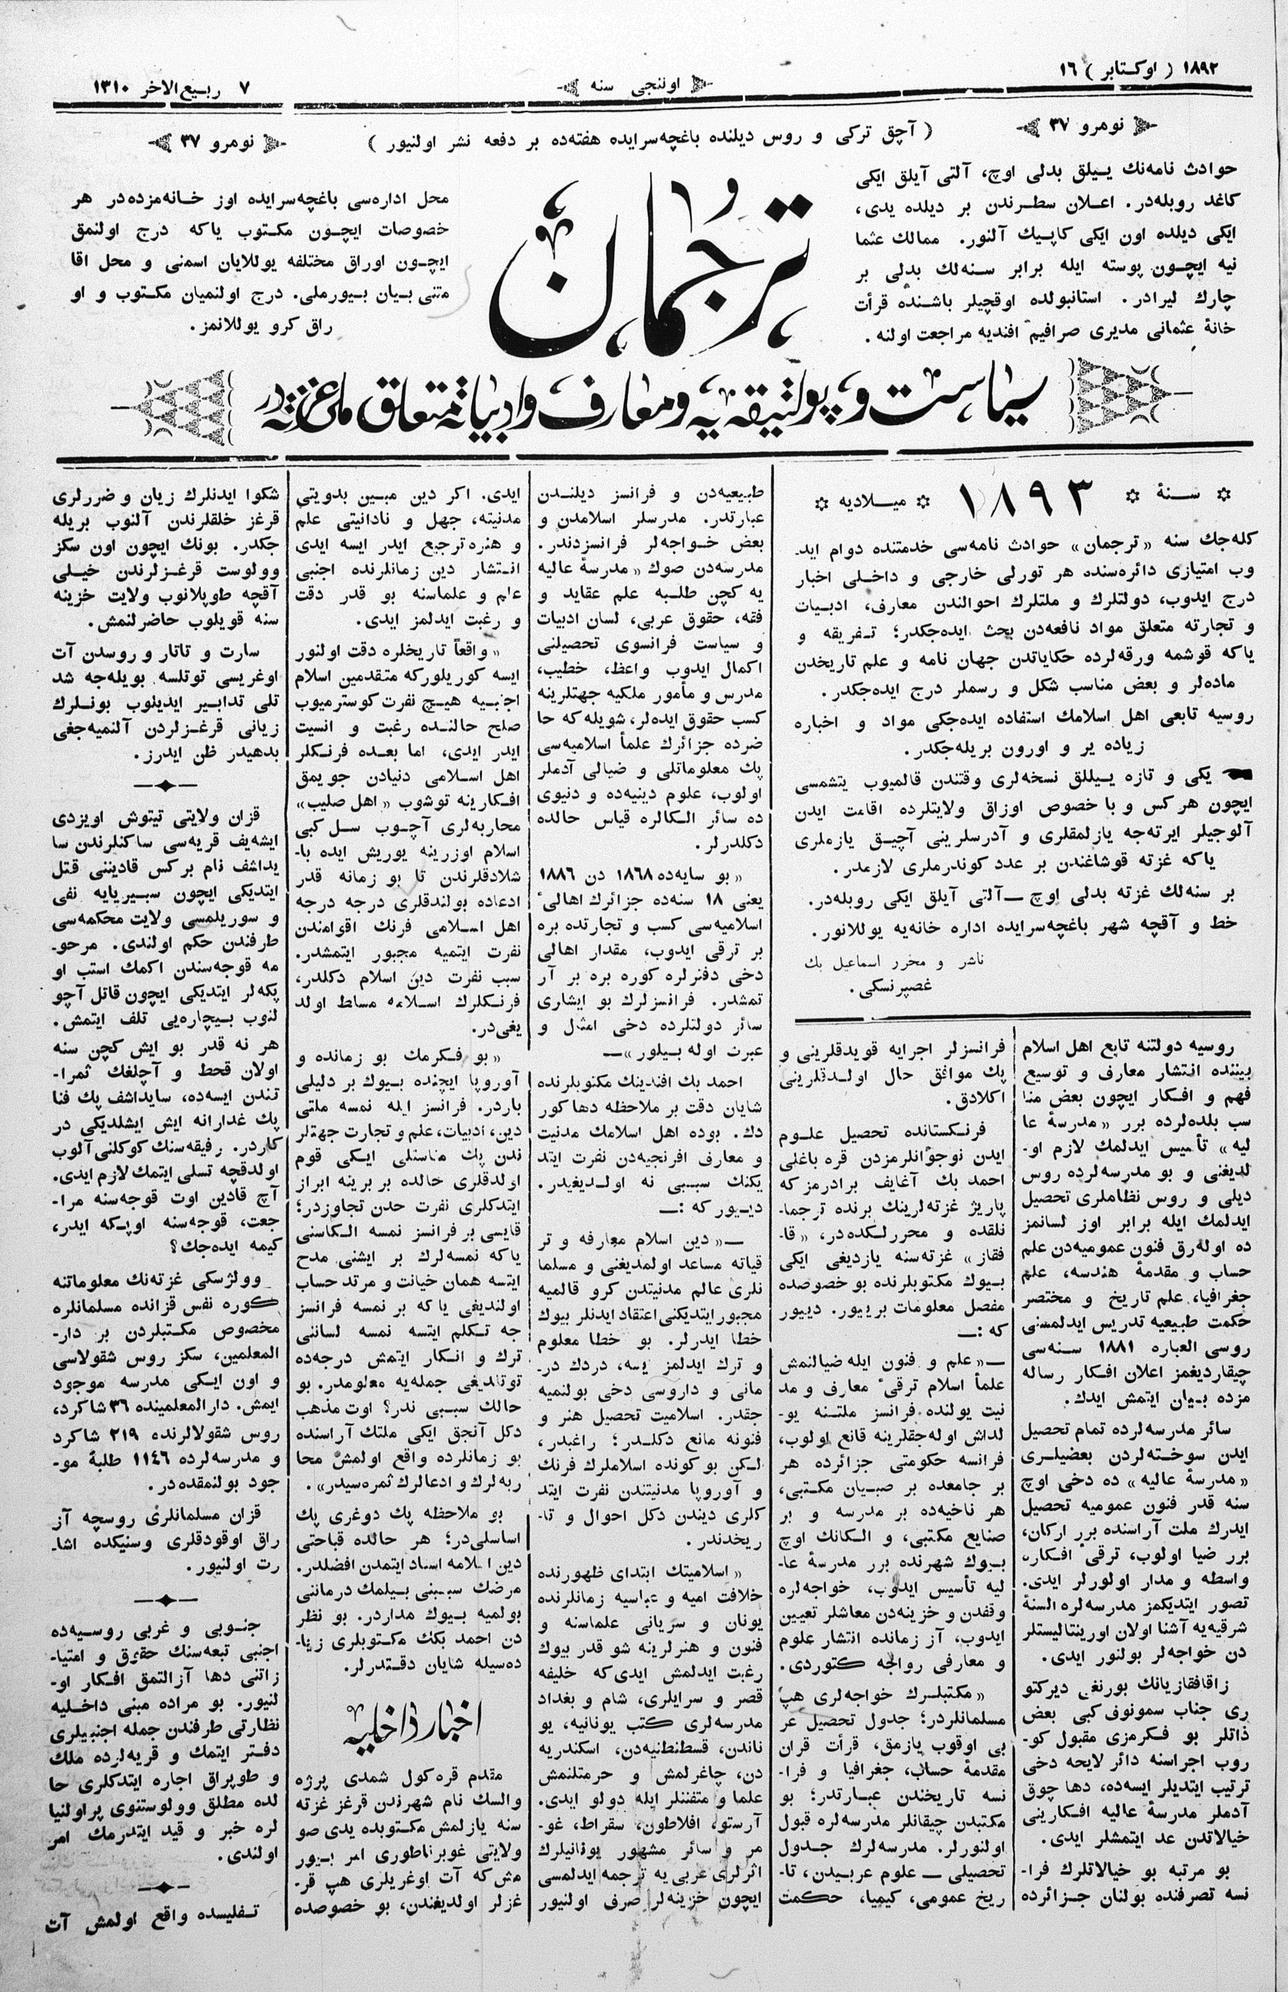 ١٨٩٢ ( اوكتابر ) ١٦
اوننجى سنه
٧ ربيع الاخر ١٣١٠
نومرو ٣٧
( آچق تركى و روس ديلنده باغچه‌سرايده هفته‌ده بر دفعه نشر اولنيور )
نومرو ٣٧
حوادث نامه‌نك ييلق بدلى اوچ، آلتى آيلق ايكى
كاغد روبله‌در. اعلان سطرندن بر ديلده يدى،
ايكى ديلده اون ايكى كاپيك آلنور. ممالك عثما
نيه ايچون پوسته ايله برابر سنه‌لك بدلى بر
چارك ليرادر. استانبولده اوقچيلر باشنده قرأت
خانهٔ عثمانى مديرى صرافيم افنديه مراجعت اولنه.
ترجمان
محل اداره‌سى باغچه‌سرايده اوز خانه‌مزده‌در هر
خصوصات ايچون مكتوب ياكه درج اولنمق
ايچون اوراق مختلفه يوللايان اسمنى و محل اقا
متنى بيان بيورملى. درج اولنميان مكتوب و او
راق كرو يوللانمز.
سياست و پولتيقه‌يه و معارف و ادبياته متعلق ملى غزته‌در
سنهٔ ١٨٩٣ ميلاديه
كله‌جك سنه «ترجمان» حوادث نامه‌سى خدمتنده دوام ايد.
وب امتيازى دائره‌سنده هر تورلى خارجى و داخلى اخبار
درج ايدوب، دولتلرك و ملتلرك احوالندن معارف، ادبيات
و تجارته متعلق مواد نافعه‌دن بحث ايده‌جكدر؛ تفريقه و
ياكه قوشمه ورقه‌لرده حكاياتدن جهان نامه و علم تاريخدن
ماده‌لر و بعض مناسب شكل و رسملر درج ايده‌جكدر.
روسيه تابعى اهل اسلامك استفاده ايده‌جكى مواد و اخباره
زياده ير و اورون بريله‌جكدر.
يكى و تازه ييللق نسخه‌لرى وقتندن قالميوب يتشمسى
ايچون هركس و با خصوص اوزاق ولايتلرده اقامت ايدن
آلوجيلر ايرته‌جه يازلمقلرى و آدرسلرينى آچيق يازملرى
ياكه غزته قوشاغندن بر عدد كوندرملرى لازمدر.
بر سنه‌لك غزته بدلى اوچ — آلتى آيلق ايكى روبله‌در.
خط و آقچه شهر باغچه‌سرايده اداره خانه‌يه يوللانور.
ناشر و محرر اسماعيل بك
غصپرنسكى.
روسيه دولتنه تابع اهل اسلام
بيننده انتشار معارف و توسيع
فهم و افكار ايچون بعض منا
سب بلده‌لرده برر «مدرسهٔ عا
ليه» تأسيس ايدلمك لازم او-
لديغنى و بو مدرسه‌لرده روس
ديلى و روس نظاملرى تحصيل
ايدلمك ايله برابر اوز لسانمز
ده اوله‌رق فنون عموميه‌دن علم
حساب و مقدمهٔ هندسه، علم
جغرافيا، علم تاريخ و مختصر
حكمت طبيعيه تدريس ايدلمسنى
روسى العباره ١٨٨١ سنه‌سى
چيقارديغمز اعلان افكار رساله
مزده بيان ايتمش ايدك.
سائر مدرسه‌لرده تمام تحصيل
ايدن سوخته‌لردن بعضيلرى
«مدرسهٔ عاليه» ده دخى اوچ
سنه قدر فنون عموميه تحصيل
ايدرك ملت آراسنده برر اركان،
برر ضيا اولوب، ترقىٔ افكار،
واسطه و مدار اولورلر ايدى.
تصور ايتديكمز مدرسه‌لره السنهٔ
شرقيه‌يه آشنا اولان اورينتاليستلر
دن خواجه‌لر بولنور ايدى.
زاقافقازيانك بورنغى ديركتو
رى جناب سمونوف كبى بعض
ذاتلر بو فكرمزى مقبول كو-
روب اجراسنه دائر لايحه دخى
ترتيب ايتديلر ايسه‌ده، دها چوق
آدملر مدرسهٔ عاليه افكارينى
خيالاتدن عد ايتمشلر ايدى.
بو مرتبه بو خيالاتلرك فرا-
نسه تصرفنده بولنان جزائرده
فرانسزلر اجرايه قويدقلرينى و
پك موافق حال اولدقلرينى
اكلادق.
فرنكستانده تحصيل علوم
ايدن نوجوانلرمزدن قره باغلى
احمد بك آغايف برادرمزكه
پاريژ غزته‌لرينك برنده ترجما-
نلقده و محررلكده‌در، «قا-
فقاز» غزته‌سنه يازديغى ايكى
بيوك مكتوبلرنده بو خصوصده
مفصل معلومات بريیور. ديیور
كه :—
—«علم و فنون ايله ضيالنمش
علمأ اسلام ترقىٔ معارف و مد
نيت يولنده فرانسز ملتنه يو-
لداش اوله‌جقلرينه قانع اولوب،
فرانسه حكومتى جزائرده هر
بر جامعده بر صبيان مكتبى،
هر ناخيه‌ده بر مدرسه و بر
صنايع مكتبى، و الكانك اوچ
بيوك شهرنده برر مدرسهٔ عا-
ليه تأسيس ايدوب، خواجه‌لره
وقفدن و خزينه‌دن معاشلر تعيين
ايدوب، آز زمانده انتشار علوم
و معارفى رواجه كتوردى.
«مكتبلرك خواجه‌لرى هپ
مسلمانلردر؛ جدول تحصيل عر
بى اوقوب يازمق، قرأت قران
مقدمهٔ حساب، جغرافيا و فرا-
نسه تاريخندن عبارتدر؛ بو
مكتبدن چيقانلر مدرسه‌لره قبول
اولنورلر. مدرسه‌لرك جدول
تحصيلى — علوم عربيدن، تا-
ريخ عمومى، كيميا، حكمت
طبيعيه‌دن و فرانسز ديلندن
عبارتدر. مدرسلر اسلامدن و
بعض خواجه‌لر فرانسزدندر.
مدرسه‌دن صوك «مدرسهٔ عاليه
يه كچن طلبه علم عقايد و
فقه، حقوق عربى، لسان ادبيات
و سياست فرانسوى تحصيلنى
اكمال ايدوب واعظ، خطيب،
مدرس و مأمور ملكيه جهتلرينه
كسب حقوق ايده‌لر، شويله‌كه حا
ضرده جزائرك علمأ اسلاميه‌سى
پك معلوماتلى و ضيالى آدملر
اولوب، علوم دينيه‌ده و دنيوى
ده سائر الكالره قياس حالده
دكلدرلر.
«بو سايه‌ده ١٨٦٨ دن ١٨٨٦
يعنى ١٨ سنه‌ده جزائرك اهالىٔ
اسلاميه‌سى كسب و تجارتده بره
بر ترقى ايدوب، مقدار اهالى
دخى دفترلره كوره بره بر آر
تمشدر. فرانسزلرك بو ايشارى
سائر دولتلرده دخى امثل و
عبرت اوله بيلور» —
احمد بك افندينك مكتوبلرنده
شايان دقت بر ملاحظه دها كور
دك. بوده اهل اسلامك مدنيت
و معارف افرنجيه‌دن نفرت ايتد
يكنك سببى نه اولديغيدر.
ديیور كه :—
—«دين اسلام معارفه و تر
قياته مساعد اولمديغنى و مسلما
نلرى عالم مدنيتدن كرو قالميه
مجبور ايتديكنى اعتقاد ايدنلر بيوك
خطا ايدرلر. بو خطا معلوم
و ترك ايدلمز ايسه، دردك در-
مانى و داروسى دخى بولنميه
جقدر. اسلاميت تحصيل هنر و
فنونه مانع دكلدر؛ راغبدر،
لكن بو كونده اسلاملرك فرنك
و آوروپا مدنيتندن نفرت ايتد
كلرى ديندن دكل احوال و تا-
ريخدندر.
«اسلاميتك ابتداى ظهورنده
خلافت اميه و عباسيه زمانلرنده
يونان و سريانى علماسنه و
فنون و هنرلرينه شو قدر بيوك
رغبت ايدلمش ايدى‌كه خليفه
قصر و سرايلرى، شام و بغداد
مدرسه‌لرى كتب يونانيه، يو
ناندن، قسطنطنيه‌دن، اسكندريه
دن، چاغرلمش و حرمتلنمش
علما و متفننلر ايله دولو ايدى.
آرستو، افلاطون، سقراط، غو-
مر و سائر مشهور يونانيلرك
اثرلرى عربى يه ترجمه ايدلمسى
ايچون خزينه‌لر صرف اولنيور
ايدى. اكر دين مبين بدويتى
مدنيته، جهل و نادانيتى علم
و هنره ترجيع ايدر ايسه ايدى
انتشار دين زمانلرنده اجنبى
علم و علماسنه بو قدر دقت
و رغبت ايدلمز ايدى.
«واقعاً تاريخلره دقت اولنور
ايسه كوريلوركه متقدمين اسلام
اجنبيه هيچ نفرت كوسترميوب
صلح حالنده رغبت و انسيت
ايدر ايدى، اما بعده فرنكلر
اهل اسلامى دنيادن جويمق
افكارينه توشوب «اهل صليب»
محاربه‌لرى آچوب سل كبى
اسلام اوزرينه يوريش ايده با-
شلادقلرندن تا بو زمانه قدر
ادعاده بولندقلرى درجه درجه
اهل اسلامى فرنك اقوامندن
نفرت ايتميه مجبور ايتمشدر.
سبب نفرت دين اسلام دكلدر،
فرنكلرك اسلامه مسلط اولد
يغى‌در.
«بو فكرمك بو زمانده و
آوروپا ايچنده بيوك بر دليلى
باردر. فرانسز ايله نمسه ملتى
دين، ادبيات، علم و تجارت جهتلر
ندن پك مناسلى ايكى قوم
اولدقلرى حالده بر برينه ابراز
ايتدكلرى نفرت حدن تجاوزدر؛
قايسى بر فرانسز نمسه الكاسنى
ياكه نمسه‌لرك بر ايشنى مدح
ايتسه همان خيانت و مرتد حساب
اولنديغى ياكه بر نمسه فرانسز
جه تكلم ايتسه نمسه لسانني
ترك و انكار ايتمش درجه‌ده
توتلديغى جمله‌يه معلومدر. بو
حالك سببى ندر؟ اوت مذهب
دكل آنجق ايكى ملتك آراسنده
بو زمانلرده واقع اولمش محا
ربه‌لرك و ادعالرك ثمره‌سيدر».
بو ملاحظه پك دوغرى پك
اساسلى‌در؛ هر حالده قباحتى
دين اسلامه اسناد ايتمدن افضلدر.
مرضك سببنى بيلمك درماننى
بولميه بيوك مداردر. بو نظر
دن احمد بكك مكتوبلرى زيا-
ده‌سيله شايان دقتدرلر.
اخبار داخليه
مقدم قره كول شمدى پرژه
والسك نام شهرندن قرغز غزته
سنه يازلمش مكتوبده يدى صو
ولايتى غوبرناطورى امر بيور
مش‌كه آت اوغريلرى هپ قر-
غزلر اولديغندن، بو خصوصده
شكوا ايدنلرك زيان و ضررلرى
قرغز خلقلرندن آلنوب بريله
جكدر. بونك ايچون اون سكز
وولوست قرغزلرندن خيلى
آقچه طوپلانوب ولايت خزينه
سنه قويلوب حاضرلنمش.
سارت و تاتار و روسدن آت
اوغريسى توتلسه بويله‌جه شد
تلى تدابير ايديلوب بونلرك
زيانى قرغزلردن آلنميه‌جغى
بدهيدر ظن ايدرز.
قزان ولايتى تيتوش اويزدى
ايشه‌يف قريه‌سى ساكنلرندن سا
يداشف نام بركس قادينى قتل
ايتديكى ايچون سبيريايه نفى
و سوريلمسى ولايت محكمه‌سى
طرفندن حكم اولندى. مرحو-
مه قوجه‌سندن اكمك استب او
پكه‌لر ايتديكى ايچون قاتل آچو
لنوب بيچاره‌يى تلف ايتمش.
هر نه قدر بو ايش كچن سنه
اولان قحط و آچلغك ثمرا-
تندن ايسه‌ده، سايداشف پك فنا
پك غدارانه ايش ايشلديكى در
كاردر. رفيقه‌سنك كوكلنى آلوب
اولدقچه تسلى ايتمك لازم ايدى.
آچ قادين اوت قوجه‌سنه مرا-
جعت، قوجه‌سنه اوپكه ايدر،
كيمه ايده‌جك؟
وولژسكى غزته‌نك معلوماتنه
كوره نفس قزانده مسلمانلره
مخصوص مكتبلردن بر دار-
المعلمين، سكز روس شقولاسى
و اون ايكى مدرسه موجود
ايمش. دارالمعلمينده ٣٦ شاكرد،
روس شقولالرنده ٢١٩ شاكرد
و مدرسه‌لرده ١١٤٦ طلبهٔ مو-
جود بولنمقده‌در.
قزان مسلمانلرى روسچه آز
راق اوقودقلرى وسنيكده اشا-
رت اولنيور.
جنوبى و غربى روسيه‌ده
اجنبى تبعه‌سنك حقوق و امتيا-
زاتنى دها آزالتمق افكار او-
لنيور. بو مراده مبنى داخليه
نظارتى طرفندن جمله اجنبيلرى
دفتر ايتمك و قريه‌لرده ملك
و طوپراق اجاره ايتدكلرى حا
لده مطلق وولوستنوى پراولنيا
لره خبر و قيد ايتدرمك امر
اولندى.
تفليسده واقع اولمش آت